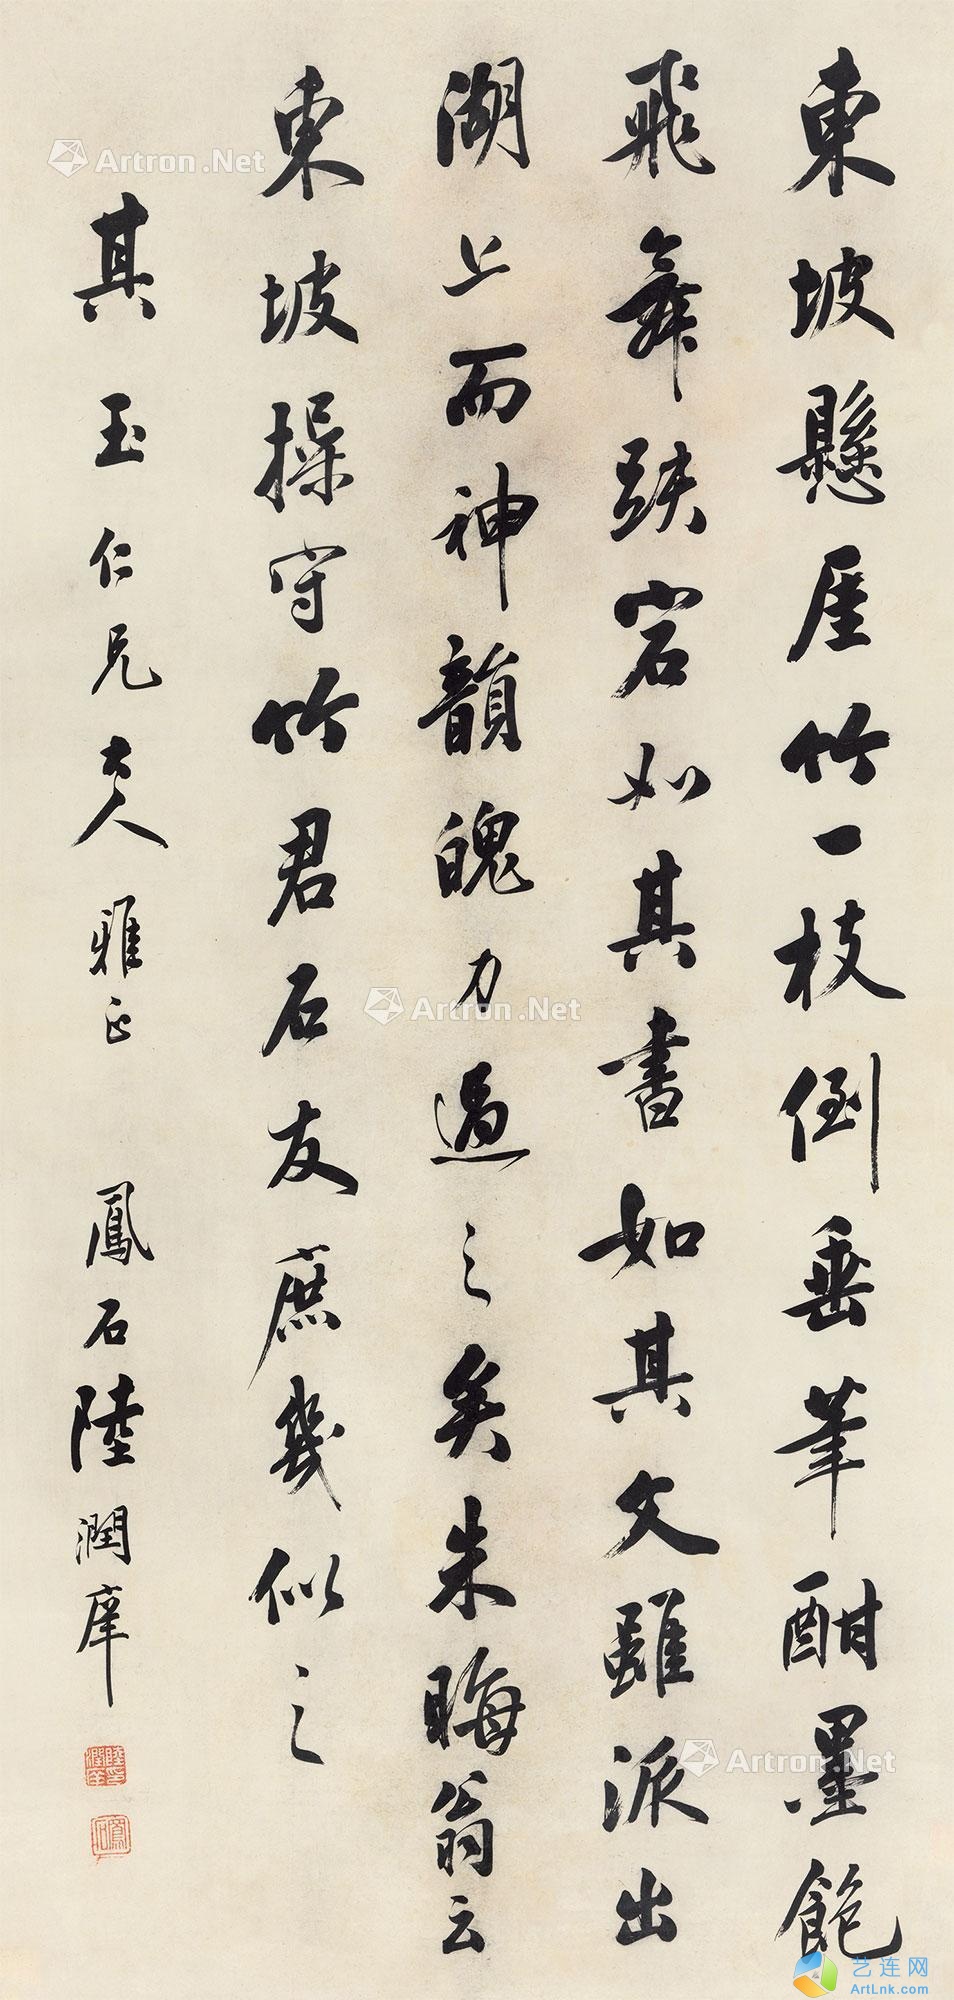 東坡懸厓竹一枝倒垂筆酣墨飽
飛舞跌宕如其書如其文雖派出
湖上而神韻魄力過之矣朱晦翁云
東坡操守竹君石友庶幾似之
其玉仁兄大人雅正 鳳石陸潤庠
陸潤庠印
鳳石
Artron.Net
Artron.Net
Artron.Net
艺连网
ArtLnk.com